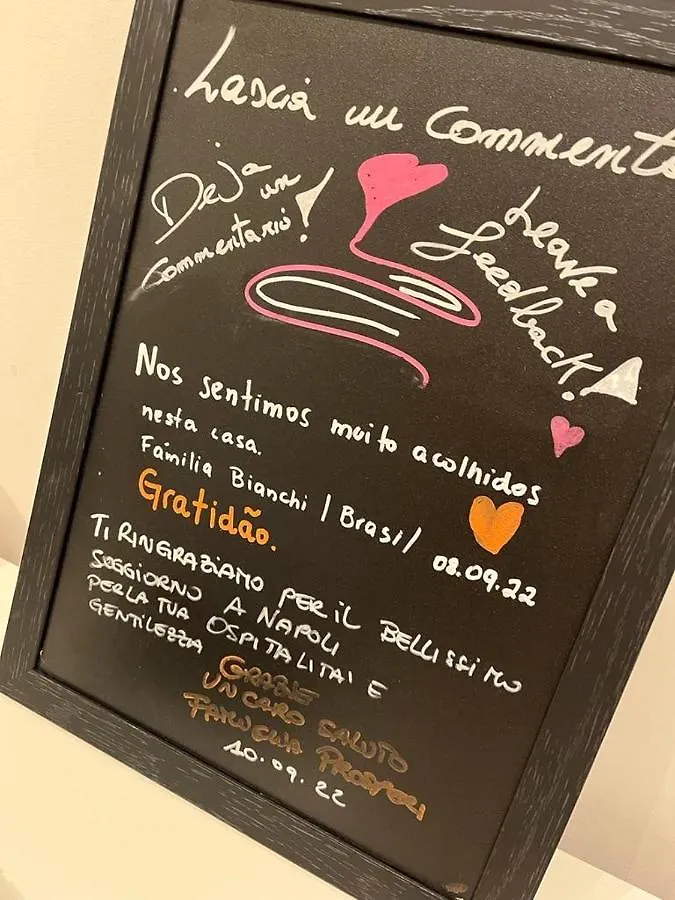 Lascia un commento
Deja
un
commentario!
Leave a
feedback!
Nos sentimos muito acolhidos
nesta casa.
Família Bianchi | Brasil 08.09.22
Gratidão.
TI RINGRAZIAMO PER IL BELLISSIMO
SOGGIORNO A NAPOLI
PER LA TUA OSPITALITAI E
GENTILEZZA
GRAZIE
UN CARO SALUTO
FAMIGLIA PROSPERI
10.09.22